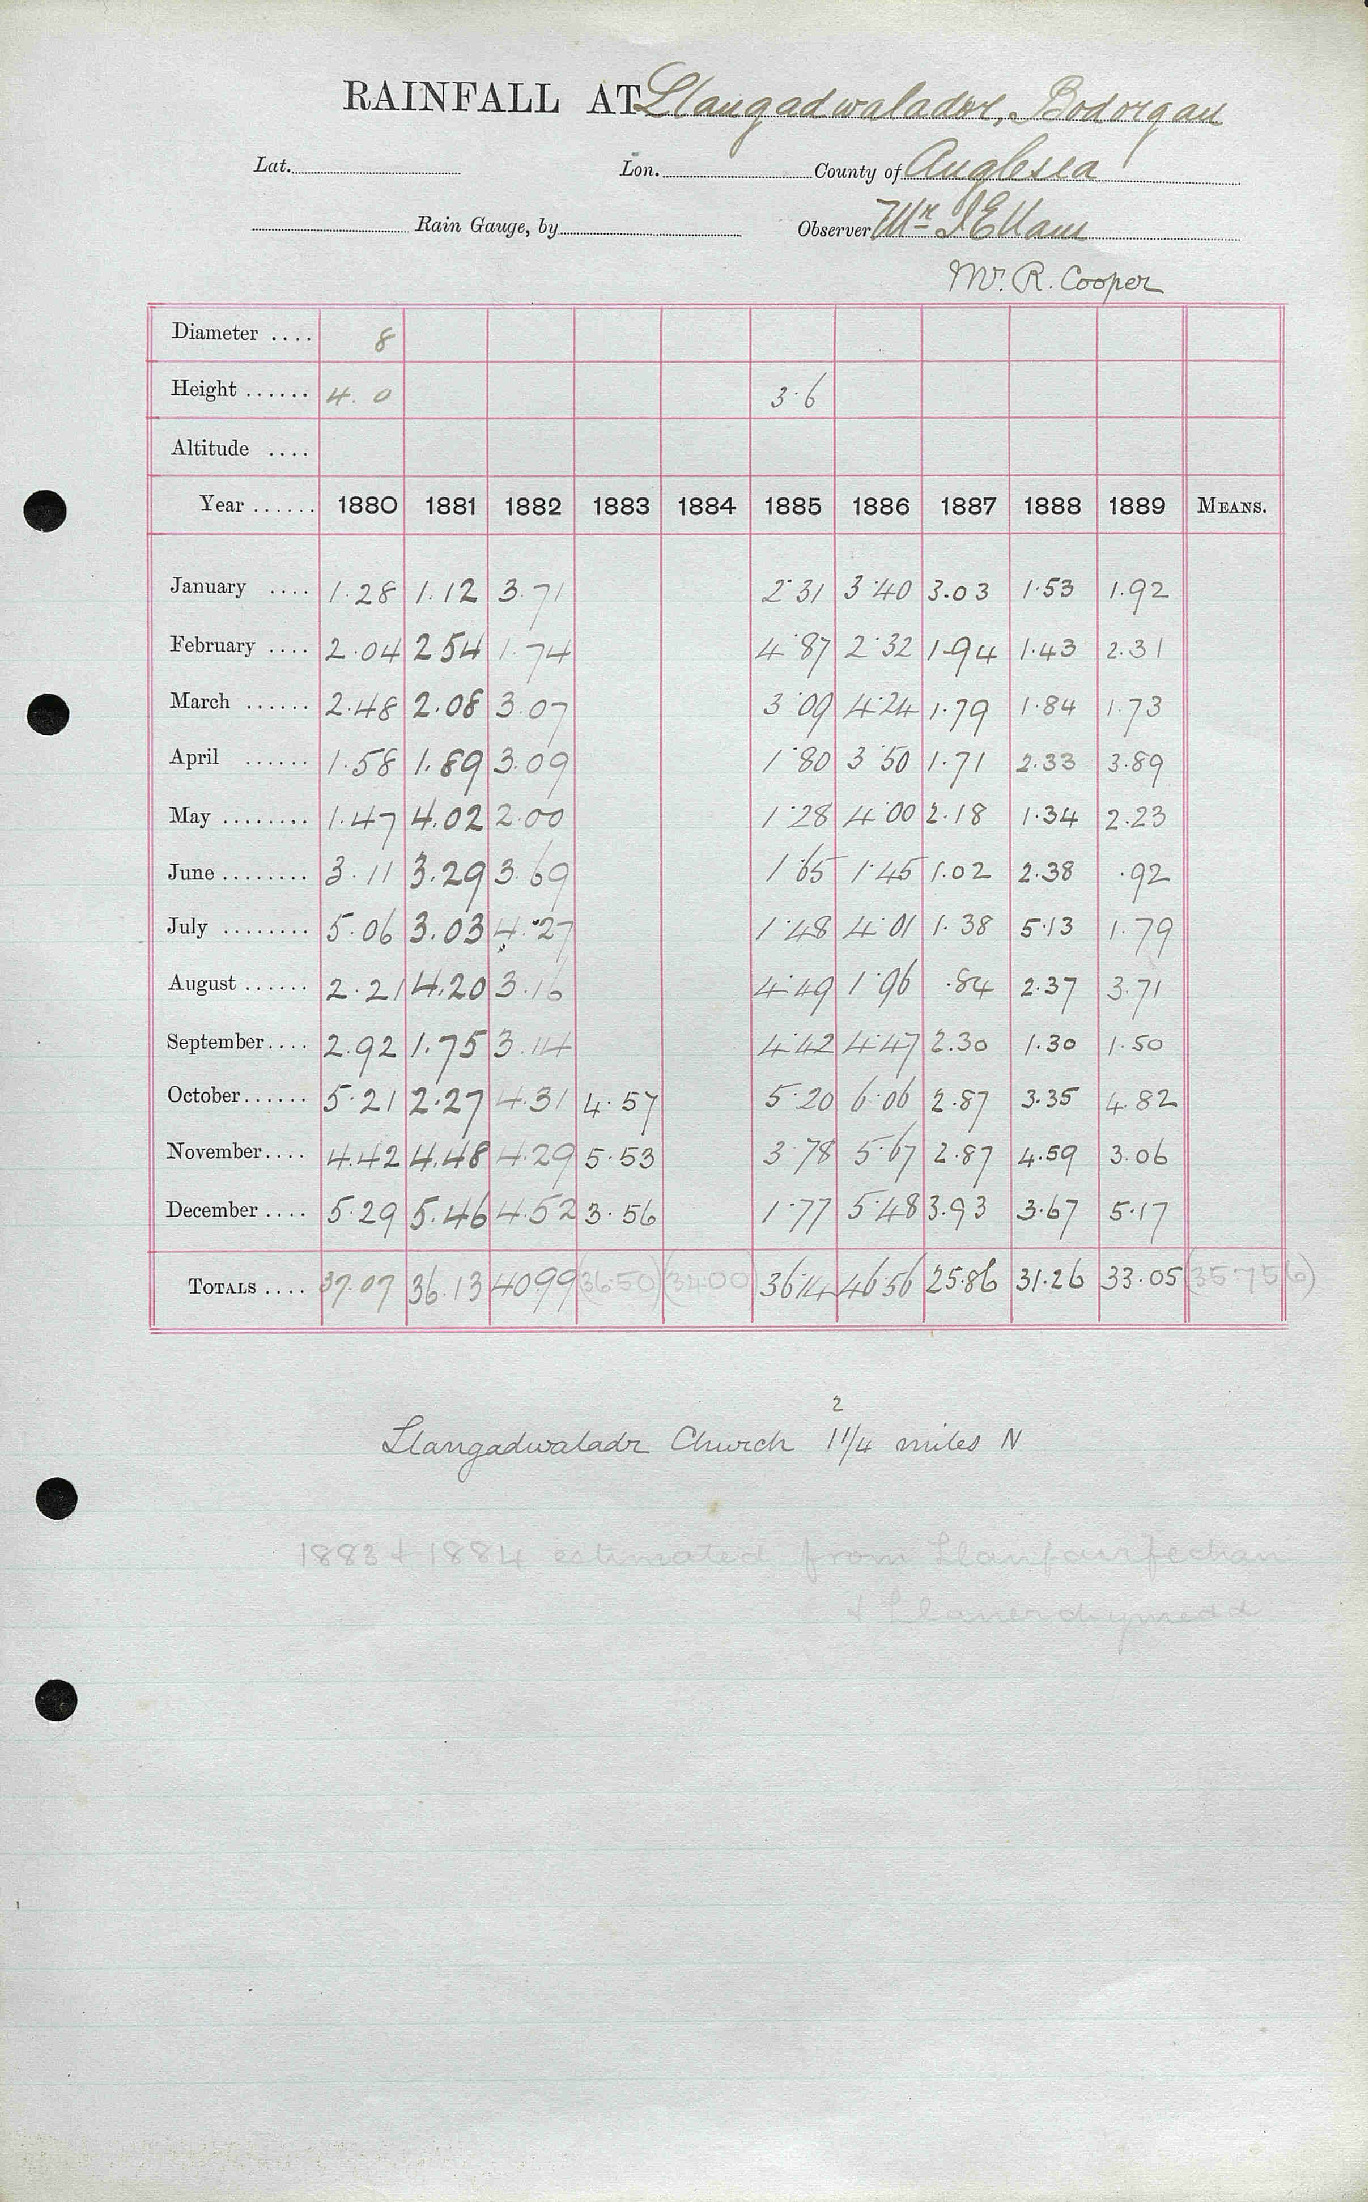 RAINFALL AT Llangadwalador, Bodorgan
Lat. Lon. County of Anglesea
Rain Gauge, by Observer Mr J Ellam
Mr. R. Cooper
Diameter .... 8
Height ...... 4. 0 3.6
Altitude ....
Year ...... 1880 1881 1882 1883 1884 1885 1886 1887 1888 1889 MEANS.
January .... 1.28 1.12 3.71 2.31 3.40 3.03 1.53 1.92
February .... 2.04 2 54 1.74 4.87 2.32 1.94 1.43 2.31
March ...... 2.48 2.08 3.07 3.09 4.24 1.79 1.84 1.73
April ...... 1.58 1.89 3.09 1.80 3.50 1.71 2.33 3.89
May ........ 1.47 4.02 2.00 1.28 4.00 2.18 1.34 2.23
June ........ 3.11 3.29 3.69 1.65 1.45 1.02 2.38 .92
July ........ 5.06 3.03 4.27 1.48 4.01 1.38 5.13 1.79
August ...... 2.21 4.20 3.16 4.49 1.96 .84 2.37 3.71
September.... 2.92 1.75 3.14 4.42 4.47 2.30 1.30 1.50
October...... 5.21 2.27 4.31 4.57 5.20 6.06 2.87 3.35 4.82
November.... 4.42 4.48 4.29 5.53 3.78 5.67 2.87 4.59 3.06
December .... 5.29 5.46 4.52 3.56 1.77 5.48 3.93 3.67 5.17
TOTALS .... 37.07 36.13 40.99 (36.50) (34.00) 36.14 46.56 25.86 31.26 33.05 (35 75 6)
2
Llangadwaladr Church 1 1/4 miles N
1883 + 1884 estimated from Llanfairfechan
+ Llanerchymedd